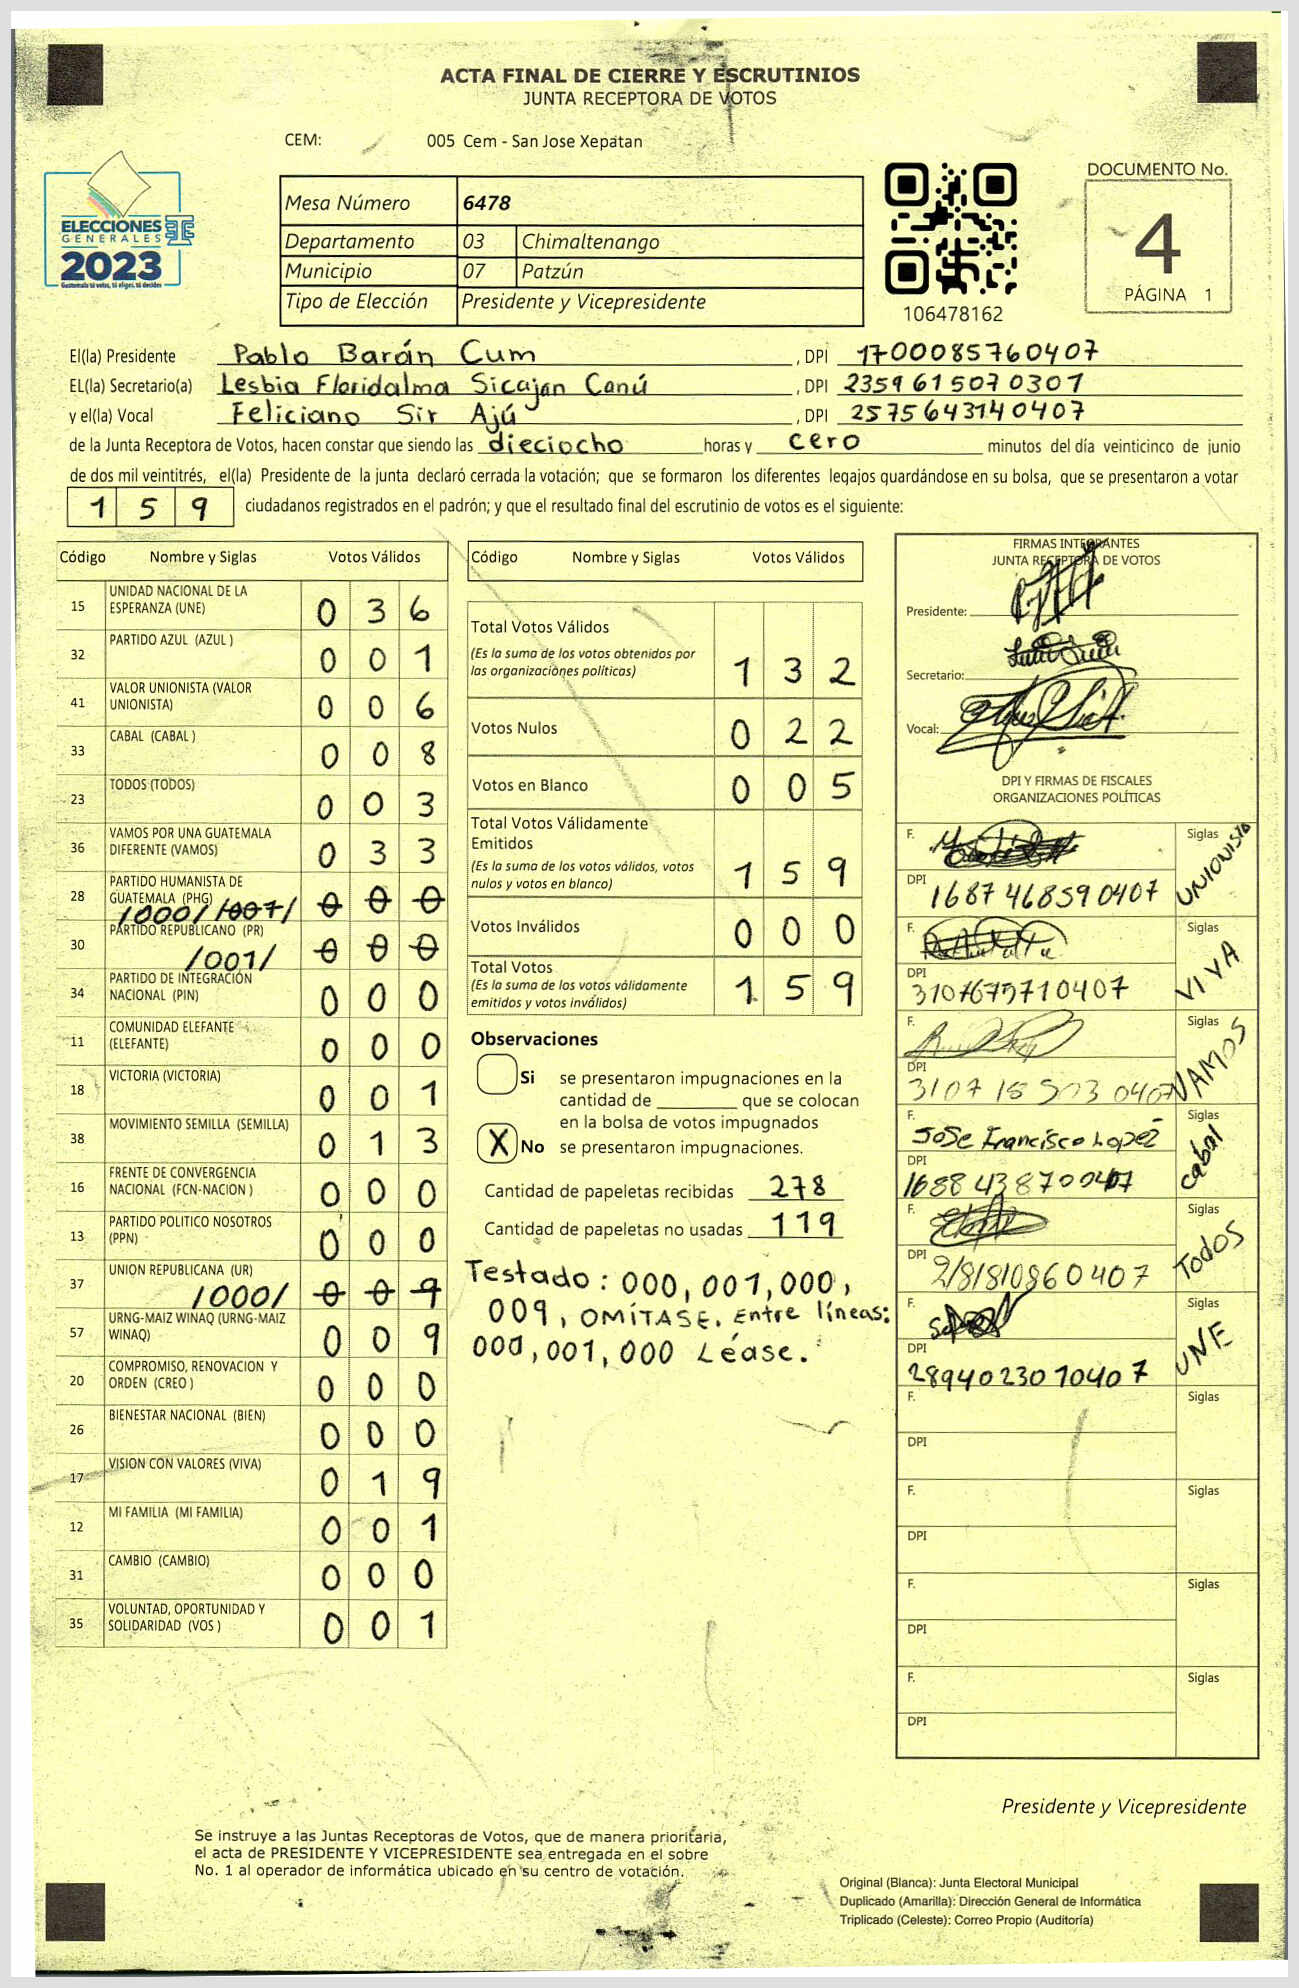 ACTA FINAL DE CIERRE Y ESCRUTINIOS
JUNTA RECEPTORA DE VOTOS
CEM: 005 Cem - San Jose Xepatan
ELECCIONES
GENERALES
2023
Guatemala tú votas, tú eliges, tú decides
Mesa Número 6478
Departamento 03 Chimaltenango
Municipio 07 Patzún
Tipo de Elección Presidente y Vicepresidente
106478162
DOCUMENTO No.
4
PÁGINA 1
El(la) Presidente Pablo Barán Cum , DPI 1700085760407
EL(la) Secretario(a) Lesbia Floridalma Sicajan Canú , DPI 2359615070301
y el(la) Vocal Feliciano Sir Ajú , DPI 2575643140407
de la Junta Receptora de Votos, hacen constar que siendo las dieciocho horas y cero minutos del día veinticinco de junio
de dos mil veintitrés, el(la) Presidente de la junta declaró cerrada la votación; que se formaron los diferentes legajos quardándose en su bolsa, que se presentaron a votar
1 5 9 ciudadanos registrados en el padrón; y que el resultado final del escrutinio de votos es el siguiente:
Código Nombre y Siglas Votos Válidos
15 UNIDAD NACIONAL DE LA
ESPERANZA (UNE) 0 3 6
32 PARTIDO AZUL (AZUL ) 0 0 1
41 VALOR UNIONISTA (VALOR
UNIONISTA) 0 0 6
33 CABAL (CABAL ) 0 0 8
23 TODOS (TODOS) 0 0 3
36 VAMOS POR UNA GUATEMALA
DIFERENTE (VAMOS) 0 3 3
28 PARTIDO HUMANISTA DE
GUATEMALA (PHG) 0 0 0
/000/ /007/
30 PARTIDO REPUBLICANO (PR) 0 0 0
/001/
34 PARTIDO DE INTEGRACIÓN
NACIONAL (PIN) 0 0 0
11 COMUNIDAD ELEFANTE
(ELEFANTE) 0 0 0
18 VICTORIA (VICTORIA) 0 0 1
38 MOVIMIENTO SEMILLA (SEMILLA) 0 1 3
16 FRENTE DE CONVERGENCIA
NACIONAL (FCN-NACION ) 0 0 0
13 PARTIDO POLITICO NOSOTROS
(PPN) 0 0 0
37 UNION REPUBLICANA (UR) 0 0 9
/000/
57 URNG-MAIZ WINAQ (URNG-MAIZ
WINAQ) 0 0 9
20 COMPROMISO, RENOVACION Y
ORDEN (CREO ) 0 0 0
26 BIENESTAR NACIONAL (BIEN) 0 0 0
17 VISION CON VALORES (VIVA) 0 1 9
12 MI FAMILIA (MI FAMILIA) 0 0 1
31 CAMBIO (CAMBIO) 0 0 0
35 VOLUNTAD, OPORTUNIDAD Y
SOLIDARIDAD (VOS ) 0 0 1
Código Nombre y Siglas Votos Válidos
Total Votos Válidos
(Es la suma de los votos obtenidos por
las organizaciones políticas) 1 3 2
Votos Nulos 0 2 2
Votos en Blanco 0 0 5
Total Votos Válidamente
Emitidos
(Es la suma de los votos válidos, votos
nulos y votos en blanco) 1 5 9
Votos Inválidos 0 0 0
Total Votos
(Es la suma de los votos válidamente
emitidos y votos inválidos) 1 5 9
Observaciones
Si se presentaron impugnaciones en la
cantidad de ________ que se colocan
en la bolsa de votos impugnados
X No se presentaron impugnaciones.
Cantidad de papeletas recibidas 278
Cantidad de papeletas no usadas 119
Testado: 000, 001, 000,
009, OMÍTASE. Entre líneas:
000, 001, 000 Léase.
FIRMAS INTEGRANTES
JUNTA RECEPTORA DE VOTOS
Presidente:
Secretario:
Vocal:
DPI Y FIRMAS DE FISCALES
ORGANIZACIONES POLÍTICAS
F. Siglas UNIONISTA
DPI 1687468590407
F. Siglas VIVA
DPI
F. Siglas VAMOS
DPI
F. José Francisco Lopez Siglas Cabal
DPI
F. Siglas Todos
DPI
F. Siglas UNE
DPI 2894023070407
F. Siglas
DPI
F. Siglas
DPI
F. Siglas
DPI
F. Siglas
DPI
Presidente y Vicepresidente
Se instruye a las Juntas Receptoras de Votos, que de manera prioritaria,
el acta de PRESIDENTE Y VICEPRESIDENTE sea entregada en el sobre
No. 1 al operador de informática ubicado en su centro de votación.
Original (Blanca): Junta Electoral Municipal
Duplicado (Amarilla): Dirección General de Informática
Triplicado (Celeste): Correo Propio (Auditoría)